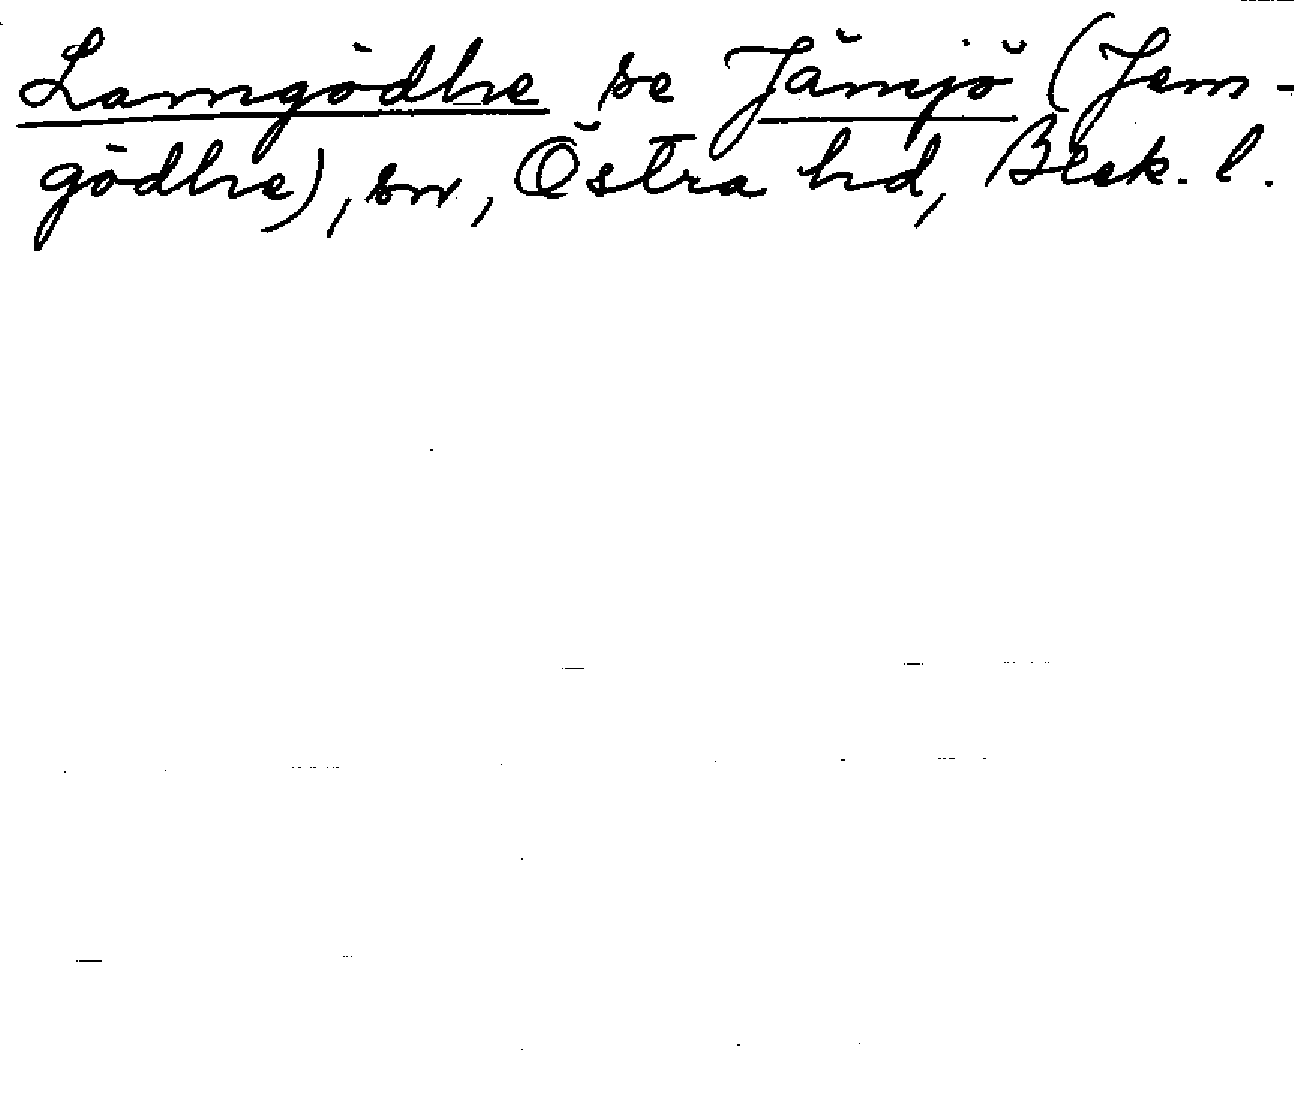 Lamgödhe se Jämjö (Jem-
gödhe), sn, Östra hd, Blek. l.